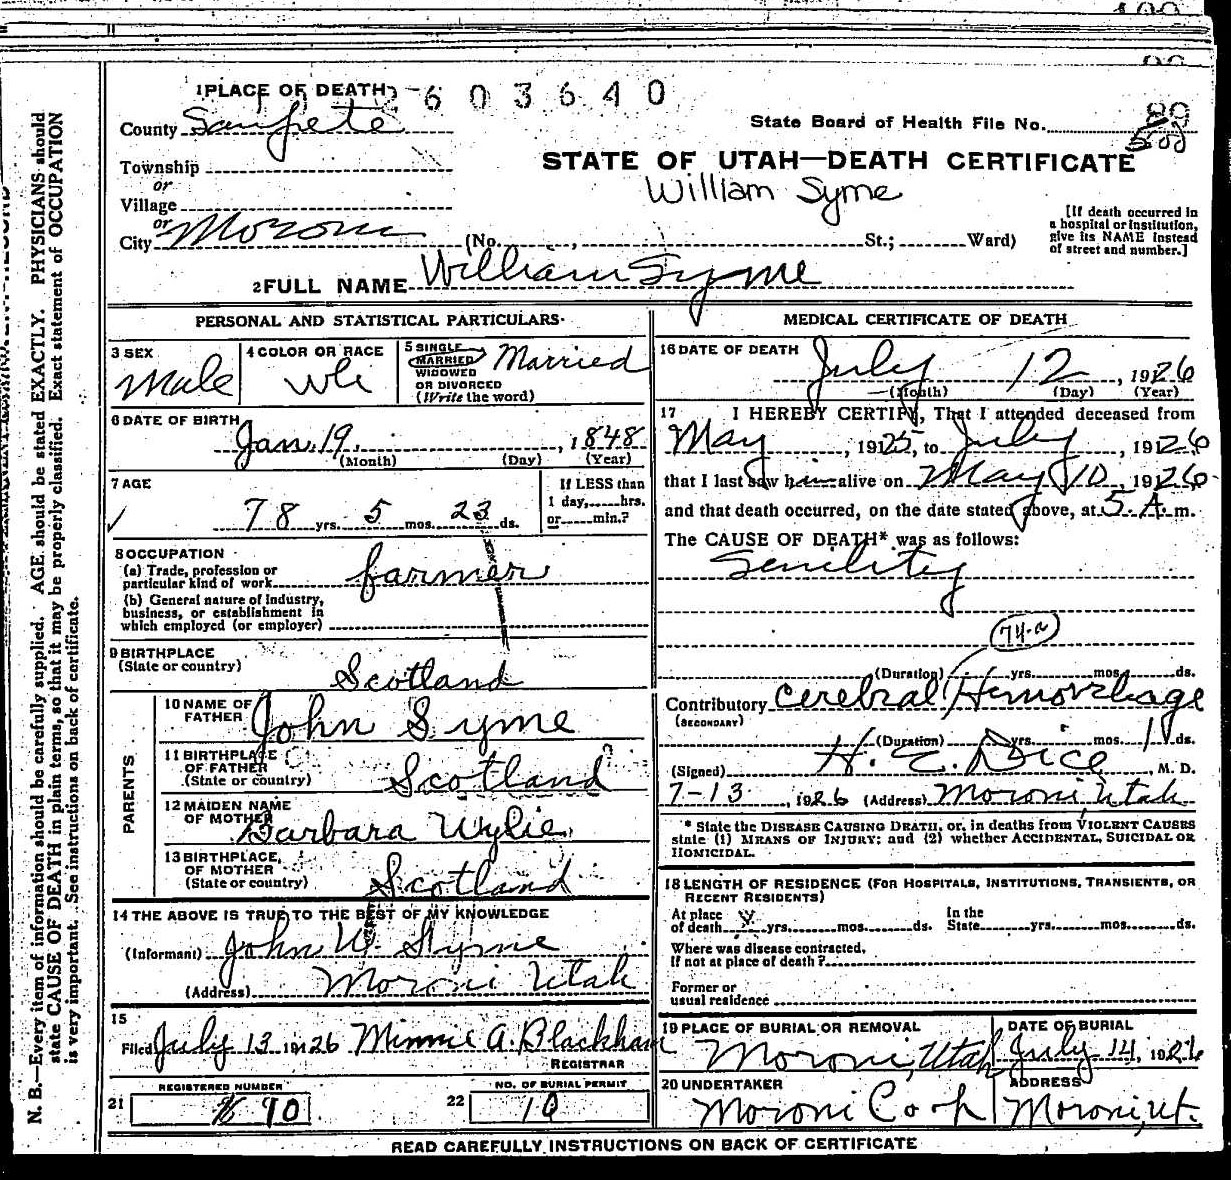 1 PLACE OF DEATH
2603640
County Sanpete
State Board of Health File No.
Township
STATE OF UTAH—DEATH CERTIFICATE
or
William Syme
Village
or
City Moroni (No. , St.; Ward)
[If death occurred in
a hospital or institution,
give its NAME instead
of street and number.]
2 FULL NAME William Syme
PERSONAL AND STATISTICAL PARTICULARS
3 SEX
Male
4 COLOR OR RACE
Wh
5 SINGLE
MARRIED
WIDOWED
OR DIVORCED
(Write the word)
Married
6 DATE OF BIRTH
Jan. 19, 1848
(Month) (Day) (Year)
7 AGE
78 yrs. 5 mos. 23 ds.
If LESS than
1 day, hrs.
or min.?
8 OCCUPATION
(a) Trade, profession or
particular kind of work farmer
(b) General nature of Industry,
business, or establishment in
which employed (or employer)
9 BIRTHPLACE
(State or country)
Scotland
PARENTS
10 NAME OF
FATHER John Syme
11 BIRTHPLACE
OF FATHER
(State or country) Scotland
12 MAIDEN NAME
OF MOTHER Barbara Wylie
13 BIRTHPLACE
OF MOTHER
(State or country) Scotland
14 THE ABOVE IS TRUE TO THE BEST OF MY KNOWLEDGE
(Informant) John W. Syme
(Address) Moroni Utah
15
Filed July 13 1926 Minnie A. Blackham
REGISTRAR
REGISTERED NUMBER
21 90
NO. OF BURIAL PERMIT
22 10
MEDICAL CERTIFICATE OF DEATH
16 DATE OF DEATH
July 12, 1926
(Month) (Day) (Year)
17 I HEREBY CERTIFY, That I attended deceased from
May, 1925, to July, 1926
that I last saw him alive on May 10 1926
and that death occurred, on the date stated above, at 5 A. m.
The CAUSE OF DEATH* was as follows:
Senility
74-a
(Duration) yrs. mos. ds.
Contributory Cerebral Hemorrhage
(SECONDARY)
(Duration) yrs. mos. 1 ds.
(Signed) H. E. Dice, M. D.
7-13, 1926 (Address) Moroni, Utah
* State the DISEASE CAUSING DEATH, or, in deaths from VIOLENT CAUSES
state (1) MEANS OF INJURY; and (2) whether ACCIDENTAL, SUICIDAL OR
HOMICIDAL.
18 LENGTH OF RESIDENCE (FOR HOSPITALS, INSTITUTIONS, TRANSIENTS, OR
RECENT RESIDENTS)
At place
of death yrs. mos. ds.
In the
State yrs. mos. ds.
Where was disease contracted,
If not at place of death?
Former or
usual residence
19 PLACE OF BURIAL OR REMOVAL
Moroni, Utah
DATE OF BURIAL
July 14, 1926
20 UNDERTAKER
Moroni Co op
ADDRESS
Moroni, Ut.
READ CAREFULLY INSTRUCTIONS ON BACK OF CERTIFICATE
N. B.—Every item of information should be carefully supplied. AGE should be stated EXACTLY. PHYSICIANS should
state CAUSE OF DEATH in plain terms, so that it may be properly classified. Exact statement of OCCUPATION
is very important. See instructions on back of certificate.